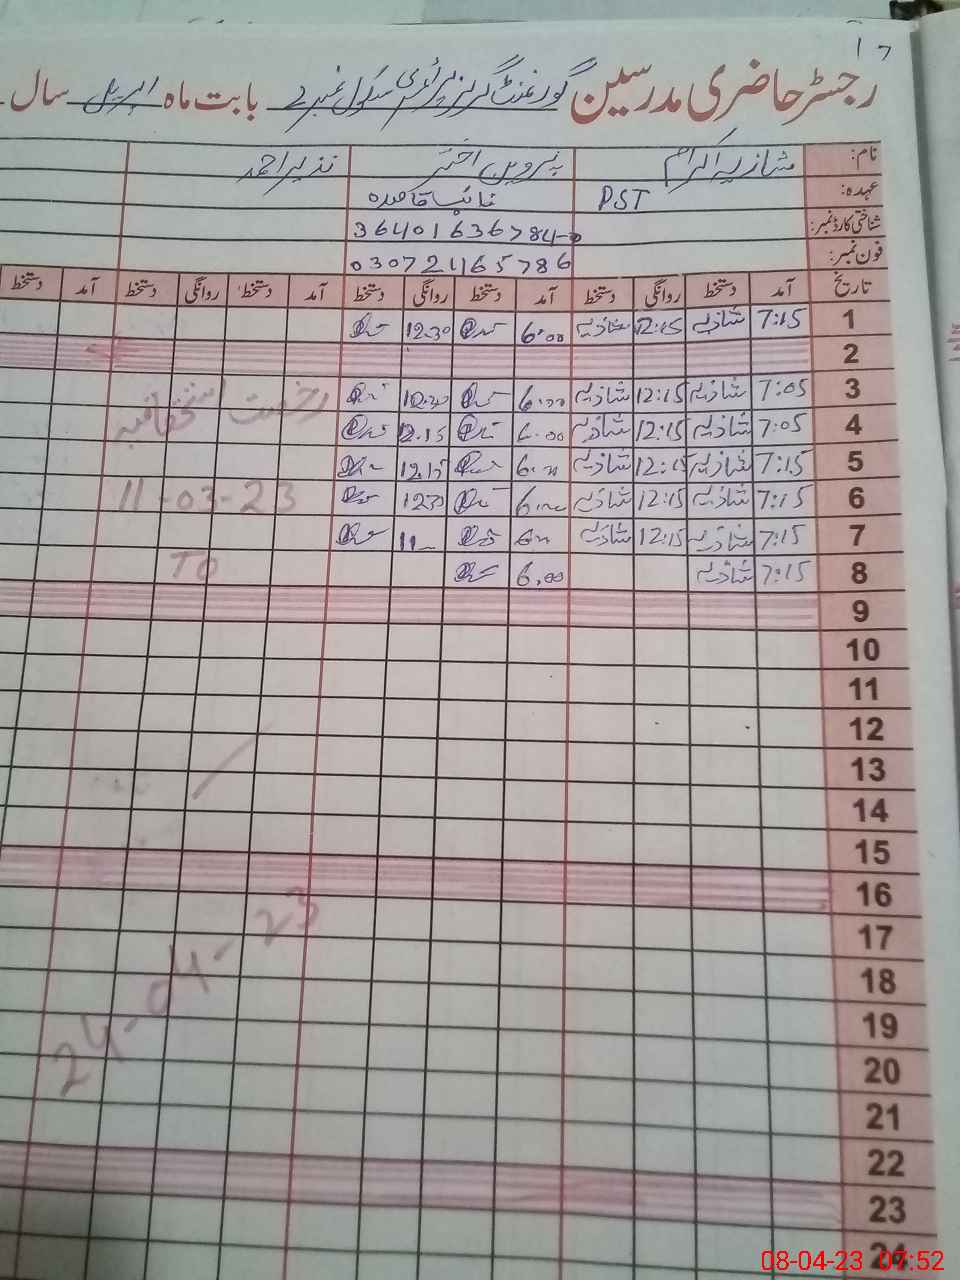 17
رجسٹر حاضری مدرسین گورنمنٹ گرلز پرائمری سکول نمبر 2 بابت ماہ اپریل سال
نام: شازیہ اکرام پروین اختر نذیر احمد
عہدہ: PST نائب قاصدہ
شناختی کارڈ نمبر: 364016367844-0
فون نمبر: 03072465786
تاریخ آمد دستخط روانگی دستخط آمد دستخط روانگی دستخط آمد دستخط روانگی دستخط آمد دستخط
1 7:15 شازیہ 12:15 شازیہ 6:00 12.30
2
3 7:05 شازیہ 12:15 شازیہ 6:00 12.30 رخصت استحقاقیہ
4 7:05 شازیہ 12:15 شازیہ 6.00 12.15
5 7:15 شازیہ 12:15 شازیہ 6.00 12.15
6 7:15 شازیہ 12:15 شازیہ 6:00 12.30 11-03-23
7 7:15 شازیہ 12:15 شازیہ 6.00 11
8 7:15 شازیہ 6.00 To
9
10
11
12
13
14
15
16
24-04-23
17
18
19
20
21
22
23
24
08-04-23 07:52